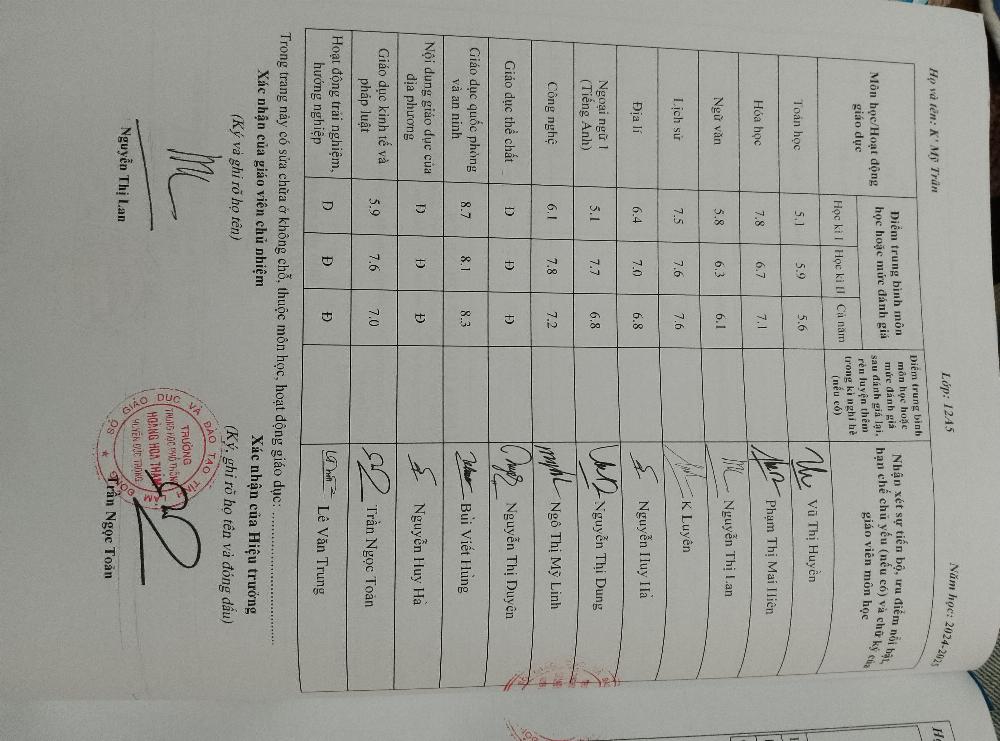 Họ và tên: K' Mỹ Trân Lớp: 12A5 Năm học: 2024-2025
Môn học/Hoạt động giáo dục
Điểm trung bình môn học hoặc mức đánh giá
Học kì I Học kì II Cả năm
Điểm trung bình môn học hoặc mức đánh giá sau đánh giá lại, rèn luyện thêm trong kì nghỉ hè (nếu có)
Nhận xét sự tiến bộ, ưu điểm nổi bật, hạn chế chủ yếu (nếu có) và chữ ký của giáo viên môn học
Toán học 5.1 5.9 5.6 Vũ Thị Huyền
Hóa học 7.8 6.7 7.1 Phạm Thị Mai Hiên
Ngữ văn 5.8 6.3 6.1 Nguyễn Thị Lan
Lịch sử 7.5 7.6 7.6 K Luyên
Địa lí 6.4 7.0 6.8 Nguyễn Huy Hà
Ngoại ngữ 1 (Tiếng Anh) 5.1 7.7 6.8 Nguyễn Thị Dung
Công nghệ 6.1 7.8 7.2 Ngô Thị Mỹ Linh
Giáo dục thể chất Đ Đ Đ Nguyễn Thị Duyên
Giáo dục quốc phòng và an ninh 8.7 8.1 8.3 Bùi Viết Hùng
Nội dung giáo dục của địa phương Đ Đ Đ Nguyễn Huy Hà
Giáo dục kinh tế và pháp luật 5.9 7.6 7.0 Trần Ngọc Toàn
Hoạt động trải nghiệm, hướng nghiệp Đ Đ Đ Lê Văn Trung
Trong trang này có sửa chữa ở không chỗ, thuộc môn học, hoạt động giáo dục: ..........................
Xác nhận của giáo viên chủ nhiệm Xác nhận của Hiệu trưởng
(Ký và ghi rõ họ tên) (Ký, ghi rõ họ tên và đóng dấu)
SỞ GIÁO DỤC VÀ ĐÀO TẠO TỈNH LÂM ĐỒNG
TRƯỜNG
TRUNG HỌC PHỔ THÔNG
HOÀNG HOA THÁM
Nguyễn Thị Lan Trần Ngọc Toàn